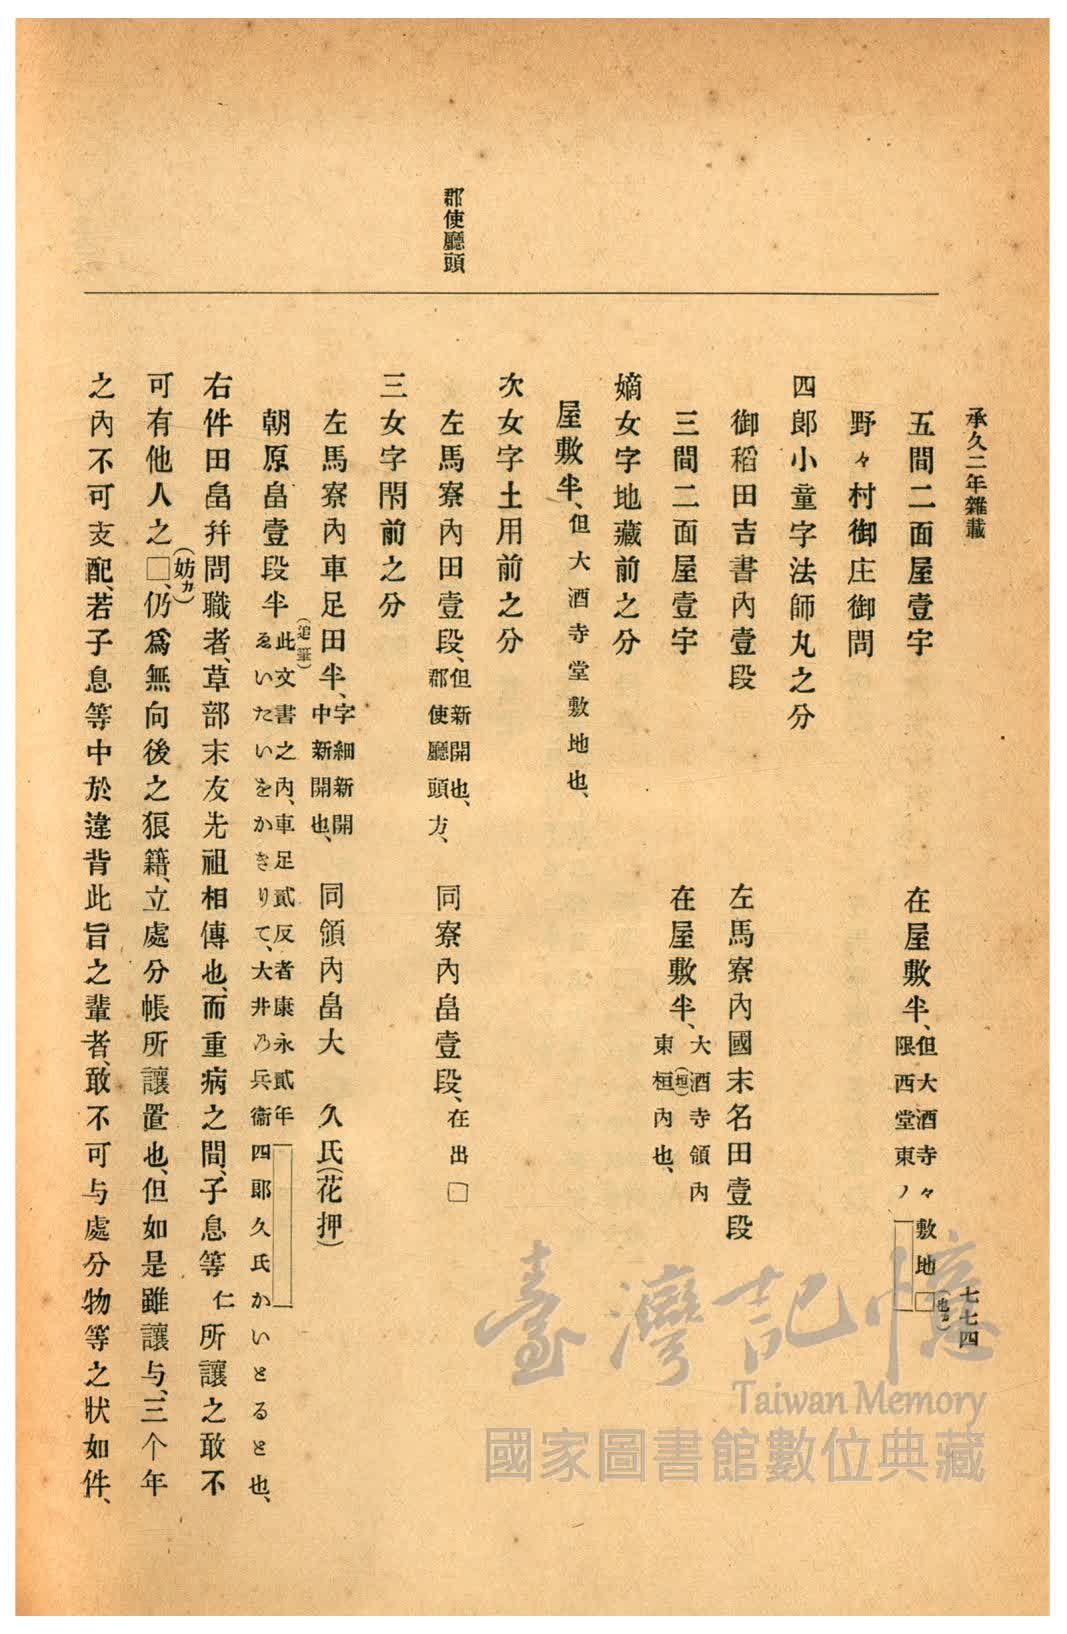 承久二年雜載
七七四
郡使廳頭
五間二面屋壹宇 在屋敷半、但大酒寺々敷地□(也カ)
限西堂東ノ
野々村御庄御問
四郎小童字法師丸之分
御稻田吉書內壹段 左馬寮內國末名田壹段
三間二面屋壹宇 在屋敷半、大酒寺領內
東桓(垣)內也、
嫡女字地藏前之分
屋敷半、但大酒寺堂敷地也、
次女字土用前之分
左馬寮內田壹段、但新開也、
郡使廳頭方、 同寮內畠壹段、在出□
三女字閑前之分
左馬寮內車足田半、字細新開
中新開也、 同領內畠大 久氏(花押)
朝原畠壹段半(追筆)此文書之內、車足貳反者康永貳年
ゑいたいをかきりて、大井乃兵衞四郎久氏かいとると也、
右件田畠幷問職者、草部末友先祖相傳也、而重病之間、子息等仁所讓之敢不
可有他人之□(妨カ)、仍爲無向後之狼籍、立處分帳所讓置也、但如是雖讓与、三个年
之內不可支配、若子息等中於違背此旨之輩者、敢不可与處分物等之狀如件、
臺灣記憶
Taiwan Memory
國家圖書館數位典藏